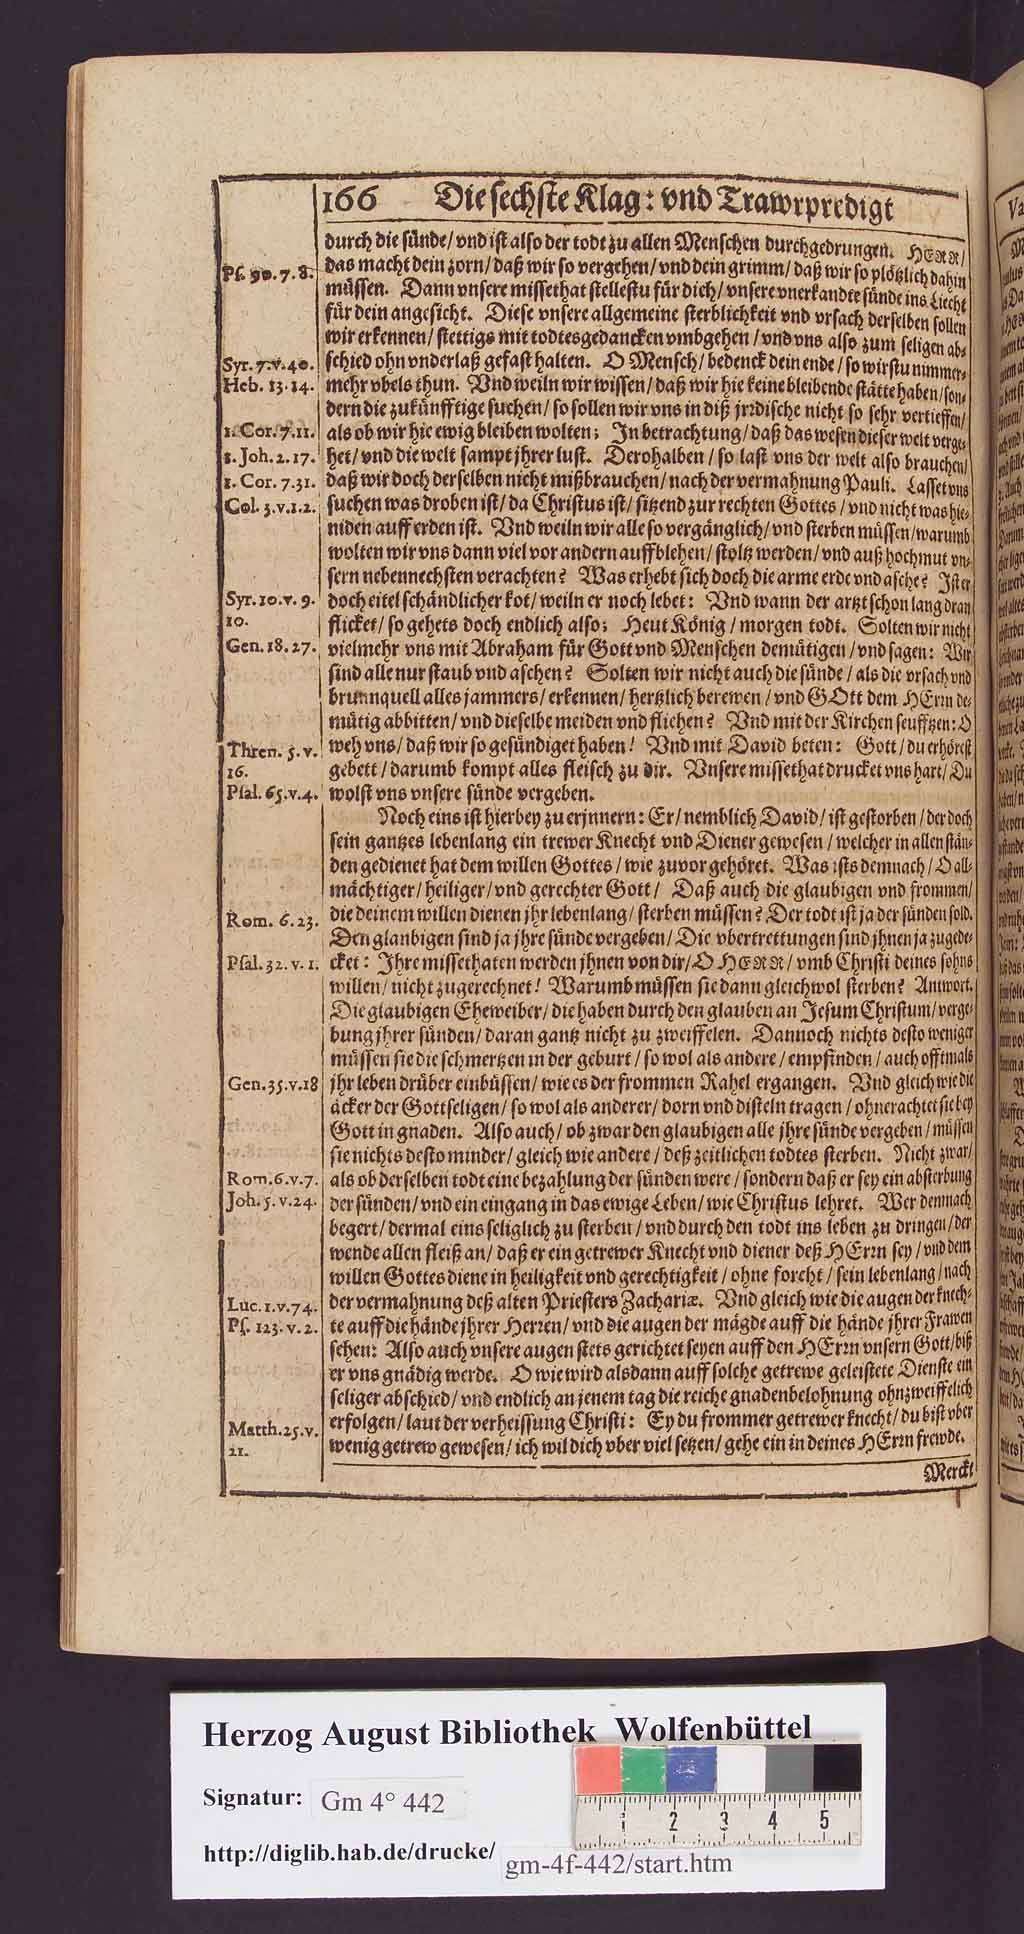 166 Die sechste Klag: vnd Trawrpredigt
durch die sünde/ vnd ist also der todt zu allen Menschen durchgedrungen. HERR/
Ps. 90. 7. 8. das macht dein zorn/ daß wir so vergehen/ vnd dein grimm/ daß wir so plötzlich dahin
müssen. Dann vnsere missethat stellestu für dich/ vnsere vnerkandte sünde ins Liecht
für dein angesicht. Diese vnsere allgemeine sterblichkeit vnd vrsach derselben sollen
wir erkennen/ stettigs mit todtesgedancken vmbgehen/ vnd vns also zum seligen ab-
Syr. 7. v. 40. schied ohn vnderlaß gefast halten. O Mensch/ bedenck dein ende/ so wirstu nimmer-
Heb. 13. 14. mehr vbels thun. Vnd weiln wir wissen/ daß wir hie keine bleibende stätte haben/ son-
dern die zukünfftige suchen/ so sollen wir vns in diß jrrdische nicht so sehr vertieffen/
1. Cor. 7. 11. als ob wir hie ewig bleiben wolten; In betrachtung/ daß das wesen dieser welt verge-
1. Joh. 2. 17. het/ vnd die welt sampt jhrer lust. Derohalben/ so last vns der welt also brauchen/
1. Cor. 7. 31. daß wir doch derselben nicht mißbrauchen/ nach der vermahnung Pauli. Lasset vns
Col. 3. v. 1. 2. suchen was droben ist/ da Christus ist/ sitzend zur rechten Gottes/ vnd nicht was hie-
niden auff erden ist. Vnd weiln wir alle so vergänglich/ vnd sterben müssen/ warumb
wolten wir vns dann viel vor andern auffblehen/ stoltz werden/ vnd auß hochmut vn-
sern nebennechsten verachten? Was erhebt sich doch die arme erde vnd asche? Ist er
Syr. 10. v. 9. doch eitel schändlicher kot/ weiln er noch lebet: Vnd wann der artzt schon lang dran
10. flicket/ so gehets doch endlich also; Heut König/ morgen todt. Solten wir nicht
Gen. 18. 27. vielmehr vns mit Abraham für Gott vnd Menschen demütigen/ vnd sagen: Wir
sind alle nur staub vnd aschen? Solten wir nicht auch die sünde/ als die vrsach vnd
brunnquell alles jammers/ erkennen/ hertzlich berewen/ vnd GOtt dem HErrn de-
mütig abbitten/ vnd dieselbe meiden vnd fliehen? Vnd mit der Kirchen seufftzen: O
Thren. 5. v. weh vns/ daß wir so gesündiget haben! Vnd mit David beten: Gott/ du erhörest
16. gebett/ darumb kompt alles fleisch zu dir. Vnsere missethat drucket vns hart/ Du
Psal. 65. v. 4. wolst vns vnsere sünde vergeben.
Noch eins ist hierbey zu erjnnern: Er/ nemblich David/ ist gestorben/ der doch
sein gantzes lebenlang ein trewer Knecht vnd Diener gewesen/ welcher in allen stän-
den gedienet hat dem willen Gottes/ wie zuvor gehöret. Was ists demnach/ O all-
mächtiger/ heiliger/ vnd gerechter Gott/ Daß auch die glaubigen vnd frommen/
Rom. 6. 23. die deinem willen dienen jhr lebenlang/ sterben müssen? Der todt ist ja der sünden sold.
Den glaubigen sind ja jhre sünde vergeben/ Die vbertrettungen sind jhnen ja zugede-
Psal. 32. v. 1. cket: Ihre missethaten werden jhnen von dir/ O HERR/ vmb Christi deines sohns
willen/ nicht zugerechnet! Warumb müssen sie dann gleichwol sterben? Antwort.
Die glaubigen Eheweiber/ die haben durch den glauben an Jesum Christum/ verge-
bung jhrer sünden/ daran gantz nicht zu zweiffelen. Dannoch nichts desto weniger
müssen sie die schmertzen in der geburt/ so wol als andere/ empfinden/ auch offtmals
Gen. 35. v. 18 jhr leben drüber einbüssen/ wie es der frommen Rahel ergangen. Vnd gleich wie die
äcker der Gottseligen/ so wol als anderer/ dorn vnd disteln tragen/ ohnerachtet sie bey
Gott in gnaden. Also auch/ ob zwar den glaubigen alle jhre sünde vergeben/ müssen
sie nichts desto minder/ gleich wie andere/ deß zeitlichen todtes sterben. Nicht zwar/
Rom. 6. v. 7. als ob derselben todt eine bezahlung der sünden were/ sondern daß er sey ein absterbung
Joh. 5. v. 24. der sünden/ vnd ein eingang in das ewige Leben/ wie Christus lehret. Wer demnach
begert/ dermal eins seliglich zu sterben/ vnd durch den todt ins leben zu dringen/ der
wende allen fleiß an/ daß er ein getrewer Knecht vnd diener deß HErrn sey/ vnd dem
willen Gottes diene in heiligkeit vnd gerechtigkeit/ ohne forcht/ sein lebenlang/ nach
Luc. 1. v. 74. der vermahnung deß alten Priesters Zachariæ. Vnd gleich wie die augen der knech-
Ps. 123. v. 2. te auff die hände jhrer Herren/ vnd die augen der mägde auff die hände jhrer Frawen
sehen: Also auch vnsere augen stets gerichtet seyen auff den HErrn vnsern Gott/ biß
er vns gnädig werde. O wie wird alsdann auff solche getrewe geleistete Dienste ein
seliger abschied/ vnd endlich an jenem tag die reiche gnadenbelohnung ohnzweiffelich
Matth. 25. v. erfolgen/ laut der verheissung Christi: Ey du frommer getrewer knecht/ du bist vber
21. wenig getrew gewesen/ ich wil dich vber viel setzen/ gehe ein in deines HErrn frewde.
Merckt
Herzog August Bibliothek Wolfenbüttel
Signatur: Gm 4° 442
http://diglib.hab.de/drucke/ gm-4f-442/start.htm
1 2 3 4 5